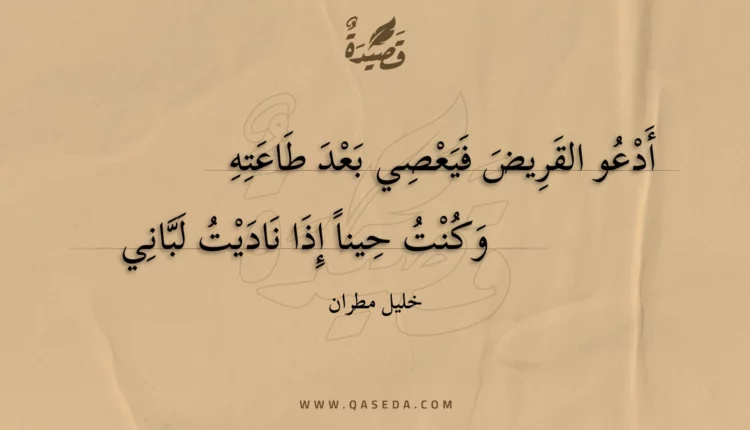 قَصِيدَةٌ
أَدْعُو القَرِيضَ فَيَعْصِي بَعْدَ طَاعَتِهِ
وَكُنْتُ حِيناً إِذَا نَادَيْتُ لَبَّانِي
خليل مطران
WWW.QASEDA.COM